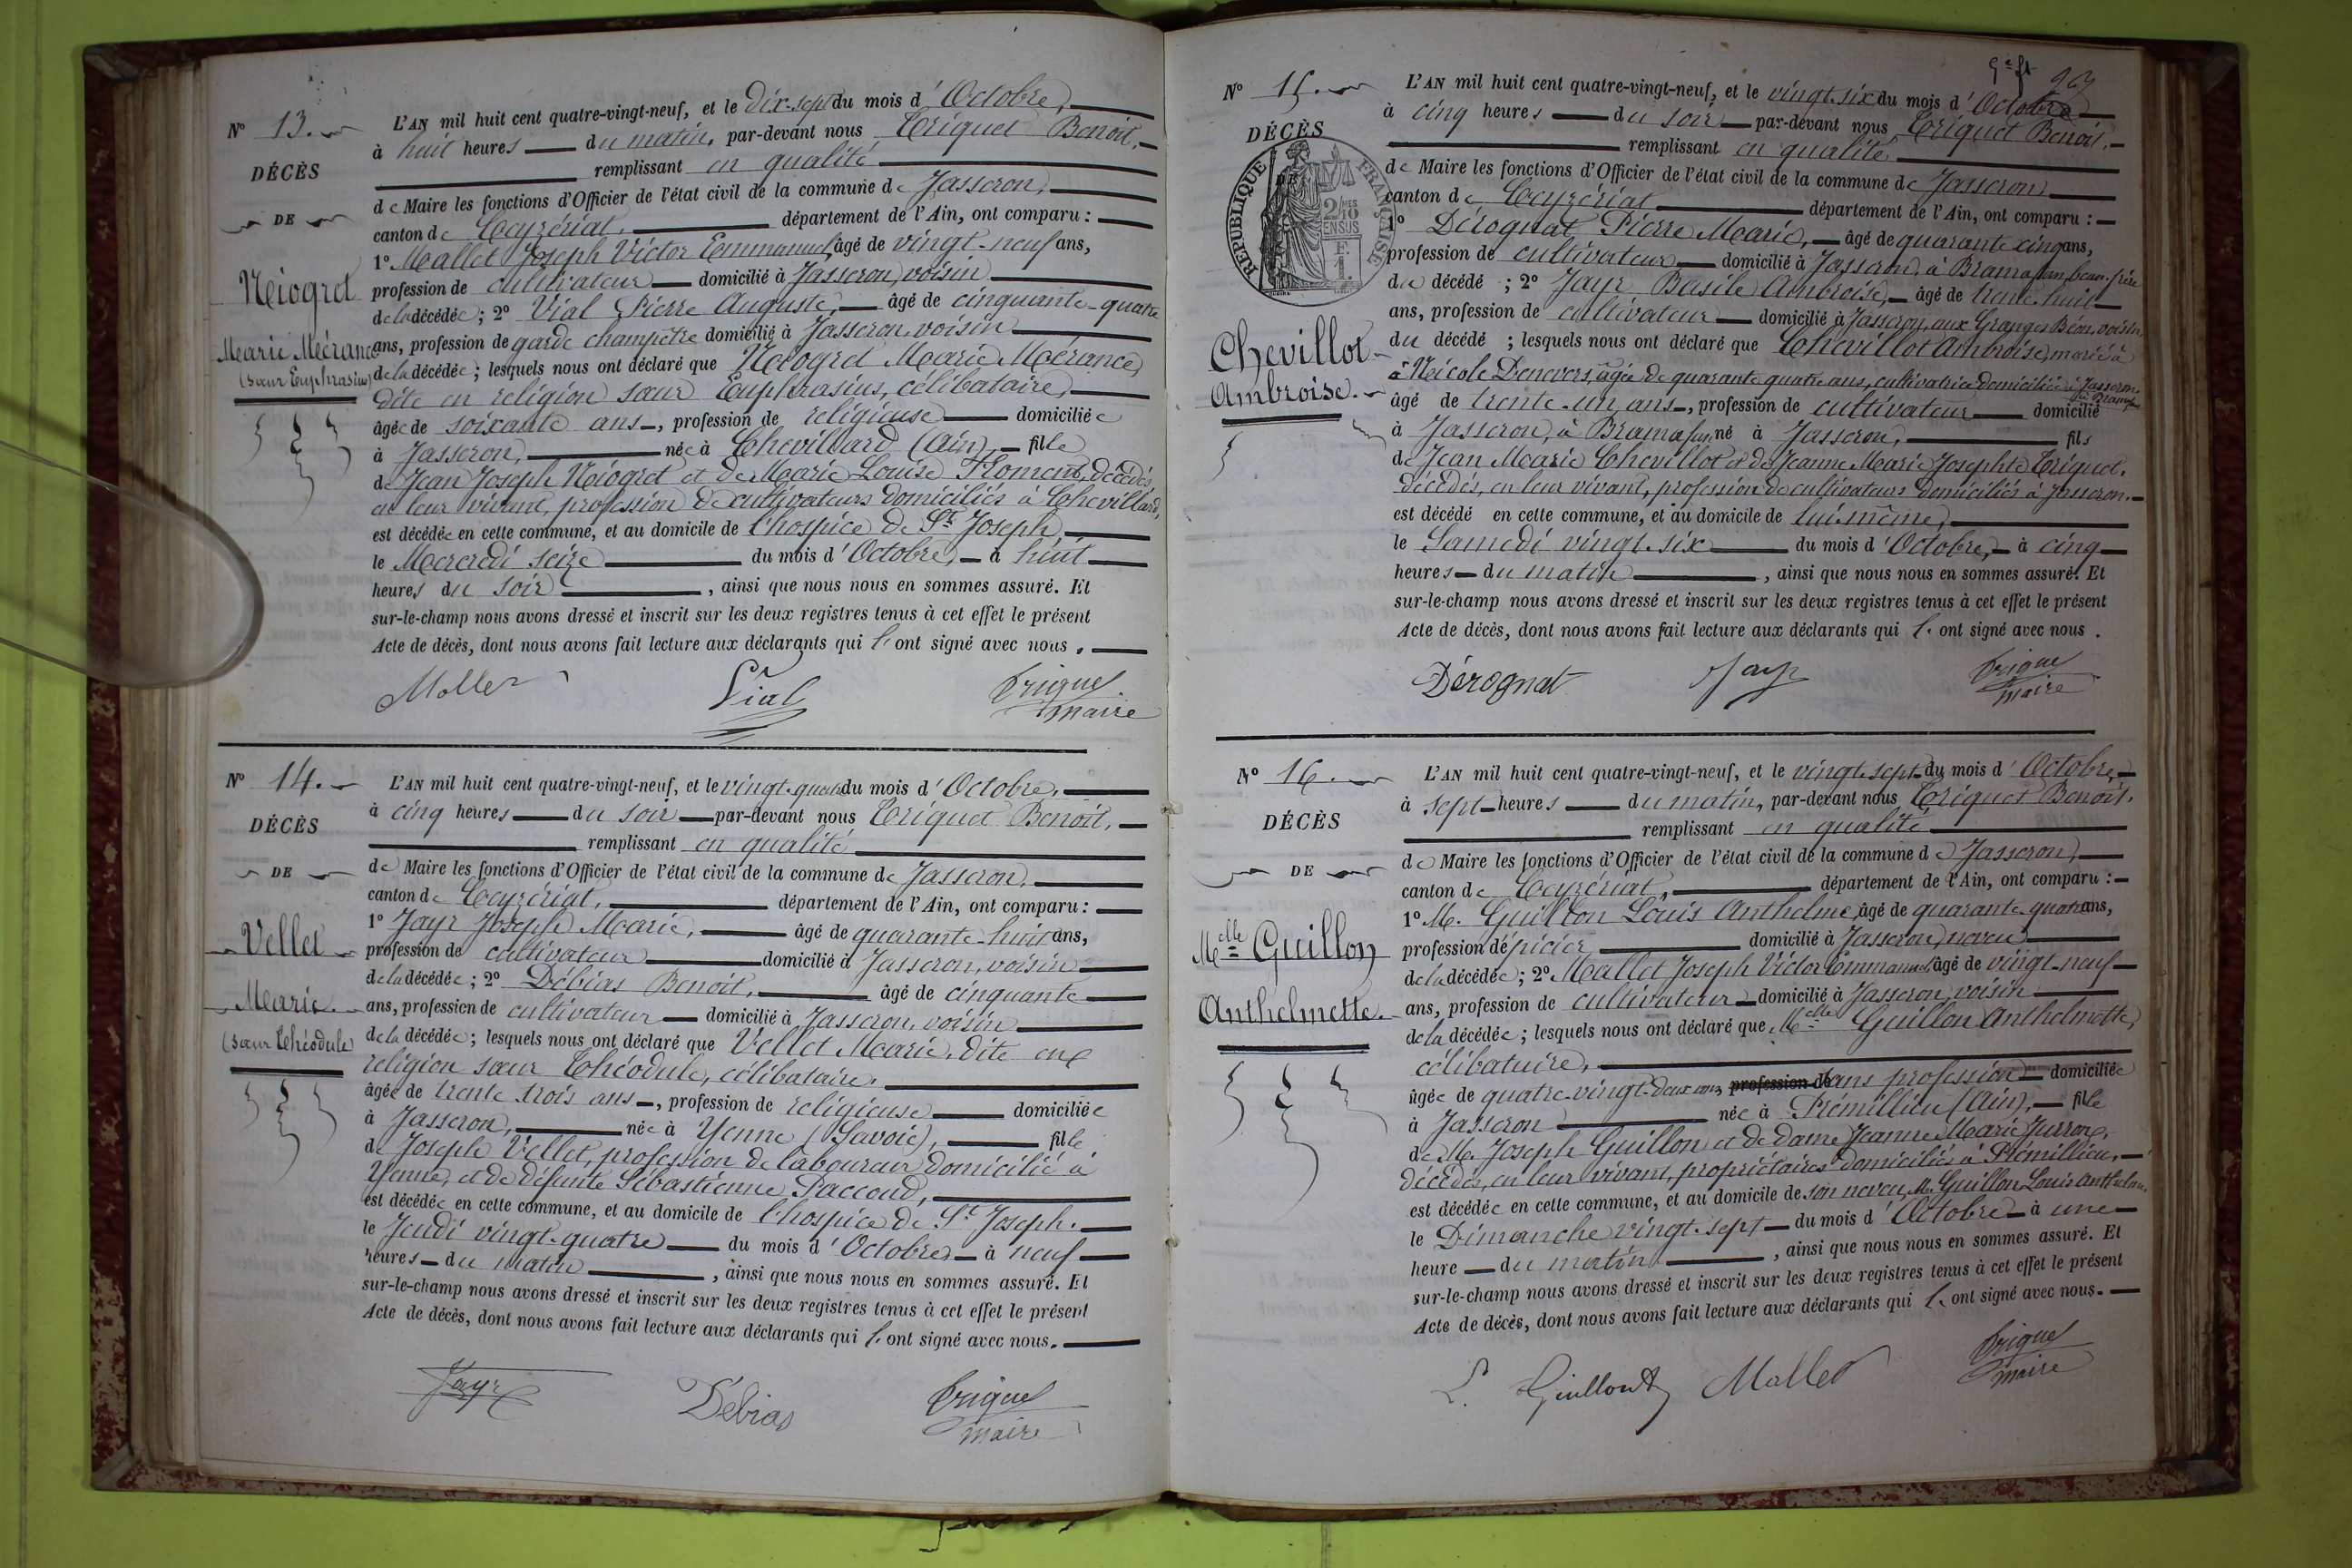 N° 13.
DÉCÈS
DE
Niogret
Marie Mérance
(sœur Euphrasius)
L'AN mil huit cent quatre-vingt-neuf, et le dix-sept du mois d'Octobre,
à huit heures du matin, par-devant nous Triquet Benoit,
remplissant en qualité
de Maire les fonctions d'Officier de l'état civil de la commune de Jasseron,
canton de Ceyzériat, département de l'Ain, ont comparu :
1° Mallet Joseph Victor Emmanuel âgé de vingt-neuf ans,
profession de cultivateur domicilié à Jasseron, voisin
de la décédée ; 2° Vial Pierre Auguste, âgé de cinquante-quatre
ans, profession de garde champêtre domicilié à Jasseron, voisin
de la décédée ; lesquels nous ont déclaré que Niogret Marie Mérance,
dite en religion sœur Euphrasius, célibataire,
âgée de soixante ans, profession de religieuse domiciliée
à Jasseron, née à Chevillard (Ain), fille
de Jean Joseph Niogret et de Marie Louise Floment, décédés,
en leur vivant, profession de cultivateurs domiciliés à Chevillard,
est décédée en cette commune, et au domicile de l'hospice de St Joseph,
le Mercredi seize du mois d'Octobre, à huit
heures du soir, ainsi que nous nous en sommes assuré. Et
sur-le-champ nous avons dressé et inscrit sur les deux registres tenus à cet effet le présent
Acte de décès, dont nous avons fait lecture aux déclarants qui l'ont signé avec nous.
Mallet Vial Triquet
maire
N° 14.
DÉCÈS
DE
Vellet
Marie.
(sœur Théodule)
L'AN mil huit cent quatre-vingt-neuf, et le vingt-quatre du mois d'Octobre,
à cinq heures du soir par-devant nous Triquet Benoit,
remplissant en qualité
de Maire les fonctions d'Officier de l'état civil de la commune de Jasseron,
canton de Ceyzériat, département de l'Ain, ont comparu :
1° Jayr Joseph Marie, âgé de quarante-huit ans,
profession de cultivateur domicilié à Jasseron, voisin
de la décédée ; 2° Débias Benoit, âgé de cinquante
ans, profession de cultivateur domicilié à Jasseron, voisin
de la décédée ; lesquels nous ont déclaré que Vellet Marie, dite en
religion sœur Théodule, célibataire,
âgée de trente trois ans, profession de religieuse domiciliée
à Jasseron, née à Yenne (Savoie), fille
de Joseph Vellet, profession de laboureur domicilié à
Yenne, et de défunte Sébastienne Paccoud,
est décédée en cette commune, et au domicile de l'hospice de St Joseph.
le Jeudi vingt-quatre du mois d'Octobre, à neuf
heures du matin, ainsi que nous nous en sommes assuré. Et
sur-le-champ nous avons dressé et inscrit sur les deux registres tenus à cet effet le présent
Acte de décès, dont nous avons fait lecture aux déclarants qui l'ont signé avec nous.
Jayr Débias Triquet
maire
N° 15.
DÉCÈS
RÉPUBLIQUE FRANÇAISE
2/10MES
EN SUS
F.
1.
Chevillot
Ambroise.
L'AN mil huit cent quatre-vingt-neuf, et le vingt-six du mois d'Octobre
à cinq heures du soir par-devant nous Triquet Benoit,
remplissant en qualité
de Maire les fonctions d'Officier de l'état civil de la commune de Jasseron
canton de Ceyzériat département de l'Ain, ont comparu :
1° Dérognat Pierre Marie, âgé de quarante cinq ans,
profession de cultivateur domicilié à Jasseron, à Bramafan, beau-frère
du décédé ; 2° Jayr Basile Ambroise, âgé de trente-huit
ans, profession de cultivateur domicilié à Jasseron, aux Granges Béon, voisin
du décédé ; lesquels nous ont déclaré que Chevillot Ambroise, marié à
à Nicole Denevers, âgée de quarante quatre ans, cultivatrice domiciliée à Jasseron
à Bramafan
âgé de trente-un ans, profession de cultivateur domicilié
à Jasseron, à Bramafan, né à Jasseron, fils
de Jean Marie Chevillot et de Jeanne Marie Josephte Triquet,
décédés, en leur vivant, profession de cultivateurs domiciliés à Jasseron.
est décédé en cette commune, et au domicile de lui-même,
le Samedi vingt-six du mois d'Octobre, à cinq
heures du matin, ainsi que nous nous en sommes assuré. Et
sur-le-champ nous avons dressé et inscrit sur les deux registres tenus à cet effet le présent
Acte de décès, dont nous avons fait lecture aux déclarants qui l'ont signé avec nous.
Dérognat Jayr Triquet
maire
N° 16.
DÉCÈS
DE
Melle Guillon
Anthelmette.
L'AN mil huit cent quatre-vingt-neuf, et le vingt-sept du mois d'Octobre,
à sept heures du matin, par-devant nous Triquet Benoit,
remplissant en qualité
de Maire les fonctions d'Officier de l'état civil de la commune de Jasseron,
canton de Ceyzériat, département de l'Ain, ont comparu :
1° M. Guillon Louis Anthelme, âgé de quarante-quatre ans,
profession d'épicier domicilié à Jasseron, neveu
de la décédée ; 2° Mallet Joseph Victor Emmanuel, âgé de vingt-neuf
ans, profession de cultivateur domicilié à Jasseron, voisin
de la décédée ; lesquels nous ont déclaré que Melle Guillon Anthelmette,
célibataire,
âgée de quatre-vingt-deux ans, profession de sans profession domiciliée
à Jasseron née à Prémillieu (Ain), fille
de M. Joseph Guillon et de dame Jeanne Marie Jurron,
décédés, en leur vivant, propriétaires domiciliés à Prémillieu,
est décédée en cette commune, et au domicile de son neveu, M. Guillon Louis Anthelme,
le Dimanche vingt-sept du mois d'Octobre à une
heure du matin, ainsi que nous nous en sommes assuré. Et
sur-le-champ nous avons dressé et inscrit sur les deux registres tenus à cet effet le présent
Acte de décès, dont nous avons fait lecture aux déclarants qui l'ont signé avec nous.
L. Guillon Mallet Triquet
maire